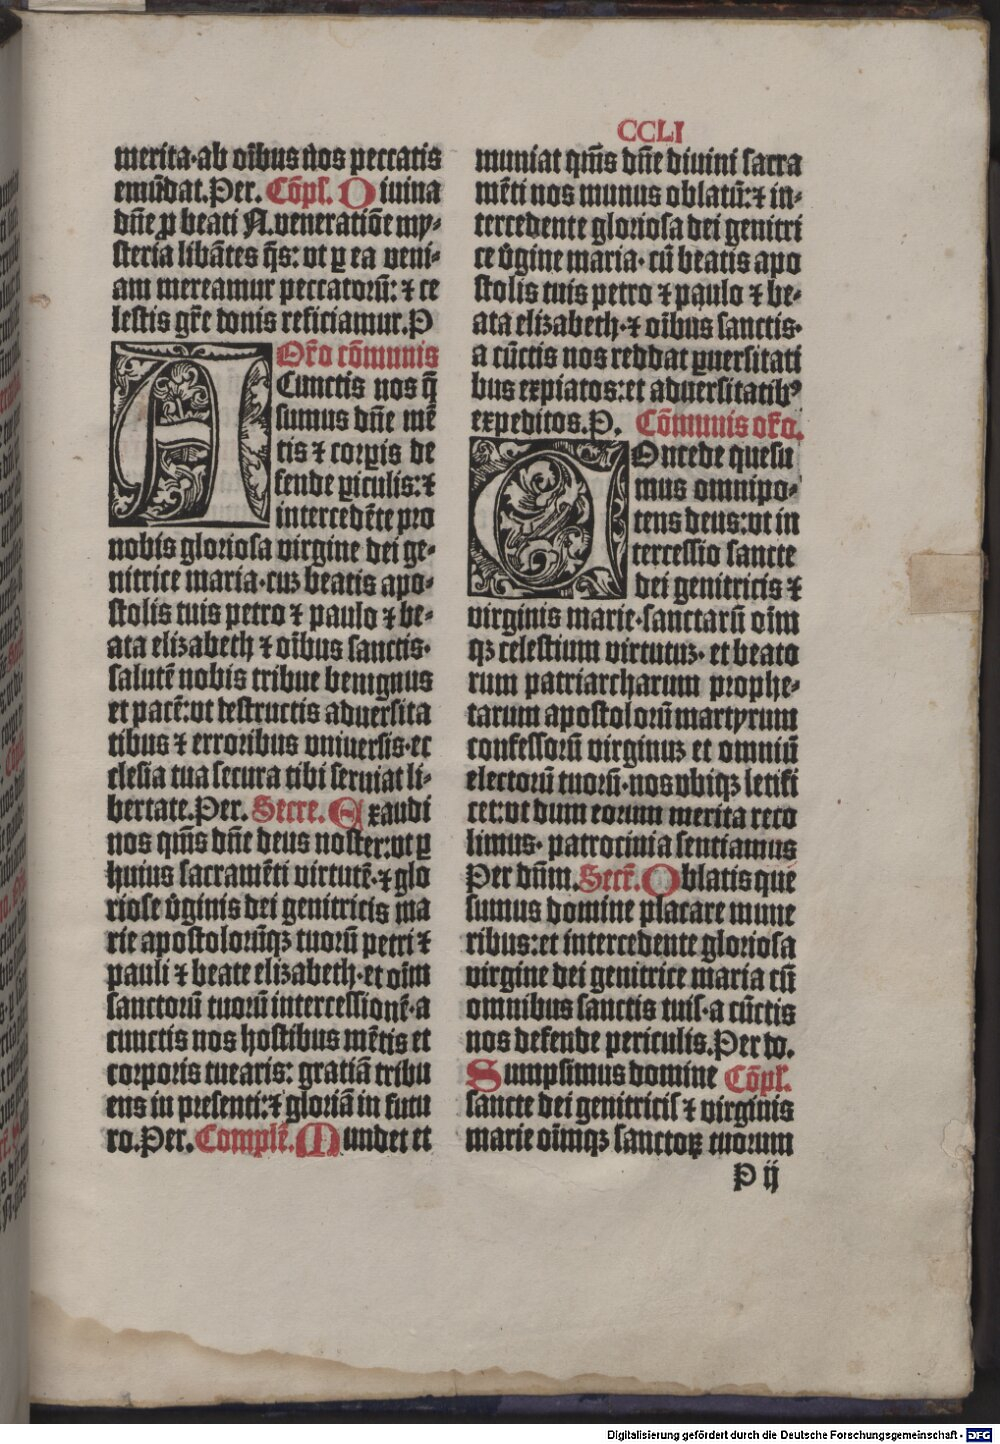 CCLI
merita·ab oībus nos peccatis
emūdat.Per. Cōpl. Diuina
dn̄e ꝓ beati N. veneratiōe my⸗
steria libātes q̄s: vt ꝑ ea veni⸗
am mereamur peccatorū: ⁊ ce
lestis gr̄e donis reficiamur.P
Or̄o cōmunis
A Cunctis nos q̄
sumus dn̄e mē
tis ⁊ corꝑis de
fende ꝑiculis:⁊
intercedēte pro
nobis gloriosa virgine dei ge⸗
nitrice maria·cuꝫ beatis apo⸗
stolis tuis petro ⁊ paulo ⁊ be⸗
ata elizabeth ⁊ oībus sanctis·
salutē nobis tribue benignus
et pacē:vt destructis aduersita
tibus ⁊ erroribus vniuersis·ec
clesia tua secura tibi seruiat li⸗
bertate.Per. Secre. Exaudi
nos qm̄s dn̄e deus noster:vt ꝑ
huius sacramēti virtutē·⁊ glo
riose v̄ginis dei genitricis ma
rie apostolorūqꝫ tuorū petri ⁊
pauli ⁊ beate elizabeth·et oīm
sanctorū tuorū intercessionē·a
cunctis nos hostibus mētis et
corporis tuearis: gratiā tribu
ens in presenti:⁊ gloriā in futu
ro.Per. Complē. Mundet et
muniat qm̄s dn̄e diuini sacra
mēti nos munus oblatū:⁊ in⸗
tercedente gloriosa dei genitri
ce v̄gine maria·cū beatis apo
stolis tuis petro ⁊ paulo ⁊ be⸗
ata elizabeth·⁊ oībus sanctis·
a cūctis nos reddat ꝑuersitati
bus expiatos:et aduersitatibꝰ
expeditos.P. Cōmunis or̄o.
COncede quesu
mus omnipo⸗
tens deus:vt in
tercessio sancte
dei genitricis ⁊
virginis marie·sanctarū oīm
qꝫ celestium virtutuꝫ·et beato
rum patriarcharum prophe⸗
tarum apostolorū martyrum
confessorū virginuꝫ et omniū
electorū tuorū·nos vbiqꝫ letifi
cet:vt dum eorum merita reco
limus· patrocinia sentiamus
Per dn̄m. Secr̄. Oblatis que
sumus domine placare mune
ribus:et intercedente gloriosa
virgine dei genitrice maria cū
omnibus sanctis tuis·a cūctis
nos defende periculis.Per do.
Sumpsimus domine Cōpl.
sancte dei genitricis ⁊ virginis
marie oīmqꝫ sanctoꝝ tuorum
P ij
Digitalisierung gefördert durch die Deutsche Forschungsgemeinschaft - DFG